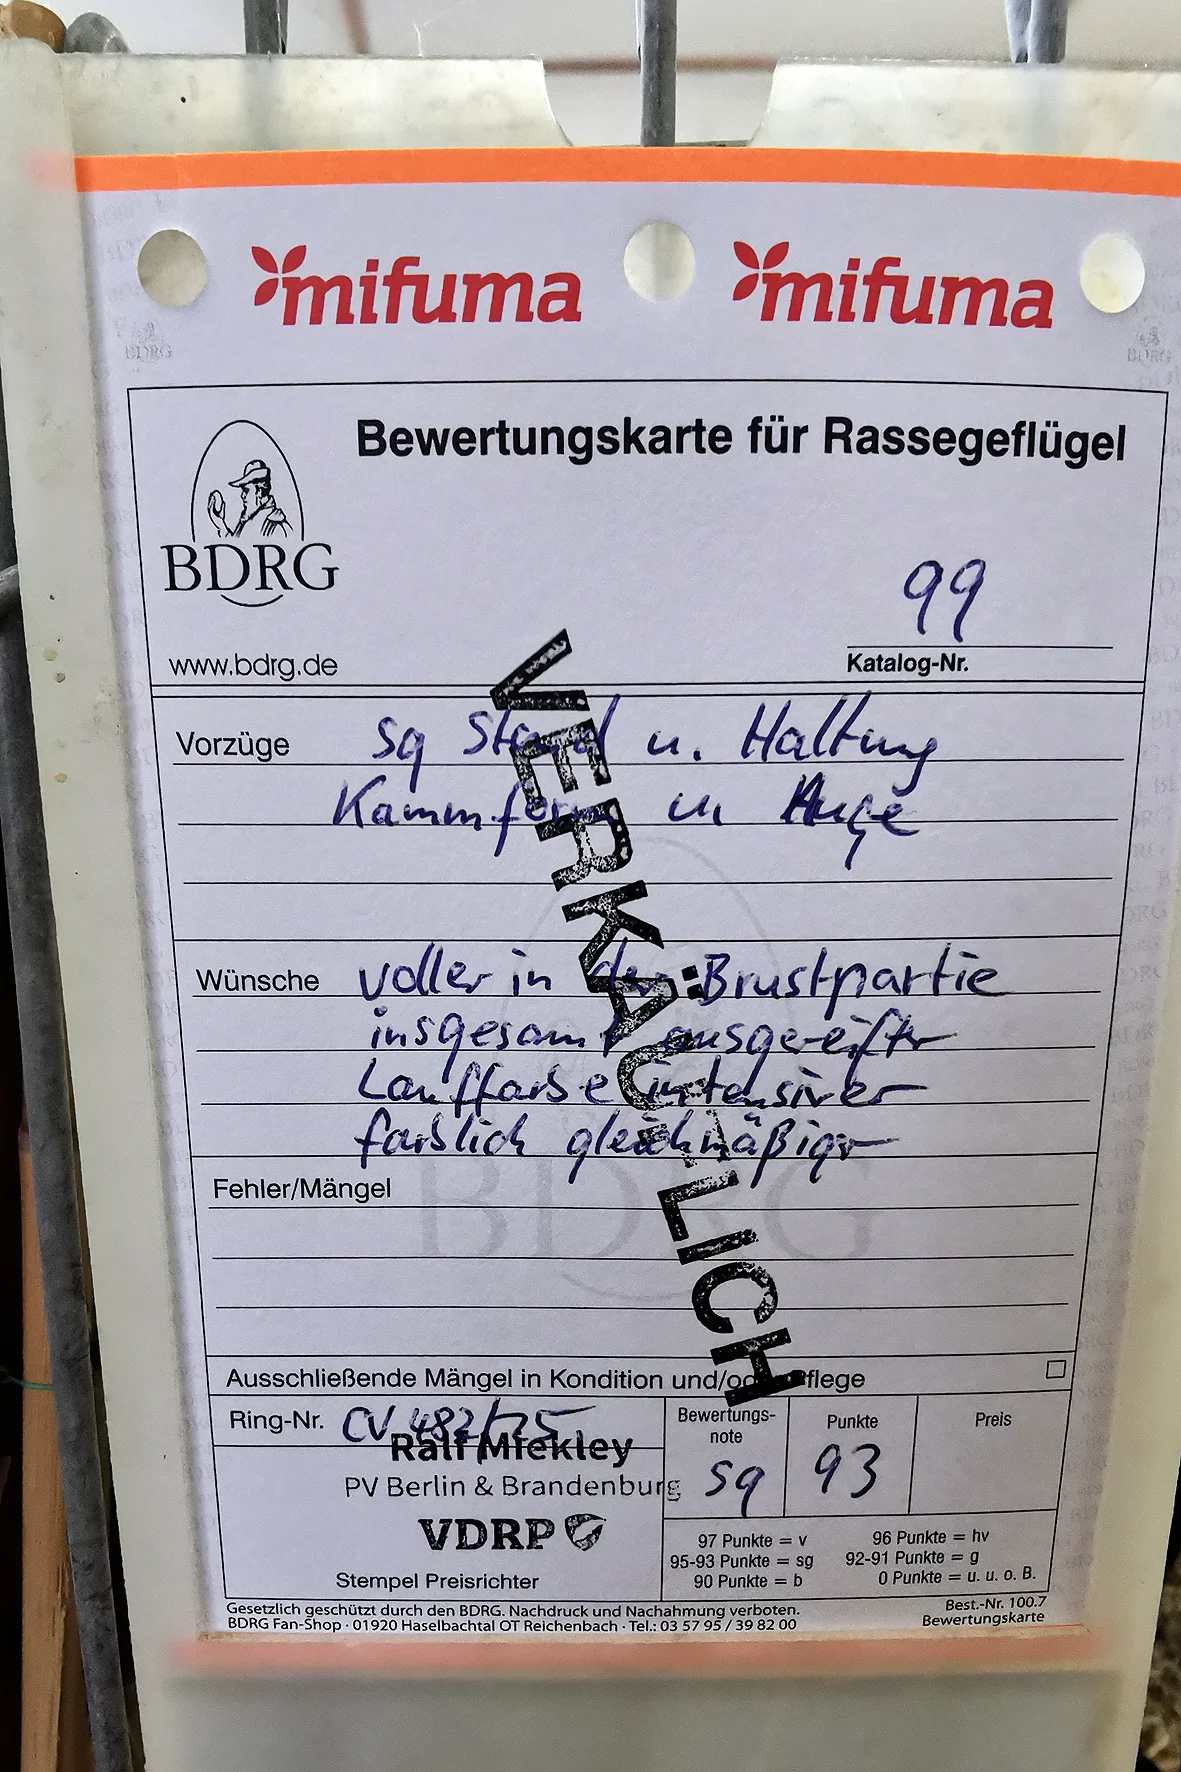 mifuma mifuma
BDRG BDRG
Bewertungskarte für Rassegeflügel
BDRG
99
www.bdrg.de Katalog-Nr.
Vorzüge sg Stand u. Haltung
Kammform u. Auge
Wünsche voller in der Brustpartie
insgesamt ausgereifter
Lauffarbe intensiver
farblich gleichmäßiger
BDRG
Fehler/Mängel
VERKÄUFLICH
Ausschließende Mängel in Kondition und/oder Pflege
Ring-Nr. CV 482/25
Bewertungs-
note
sg
Punkte
93
Preis
Ralf Miekley
PV Berlin & Brandenburg
VDRP
Stempel Preisrichter
97 Punkte = v 96 Punkte = hv
95-93 Punkte = sg 92-91 Punkte = g
90 Punkte = b 0 Punkte = u. u. o. B.
Gesetzlich geschützt durch den BDRG. Nachdruck und Nachahmung verboten.
BDRG Fan-Shop · 01920 Haselbachtal OT Reichenbach · Tel.: 03 57 95 / 39 82 00
Best.-Nr. 100.7
Bewertungskarte